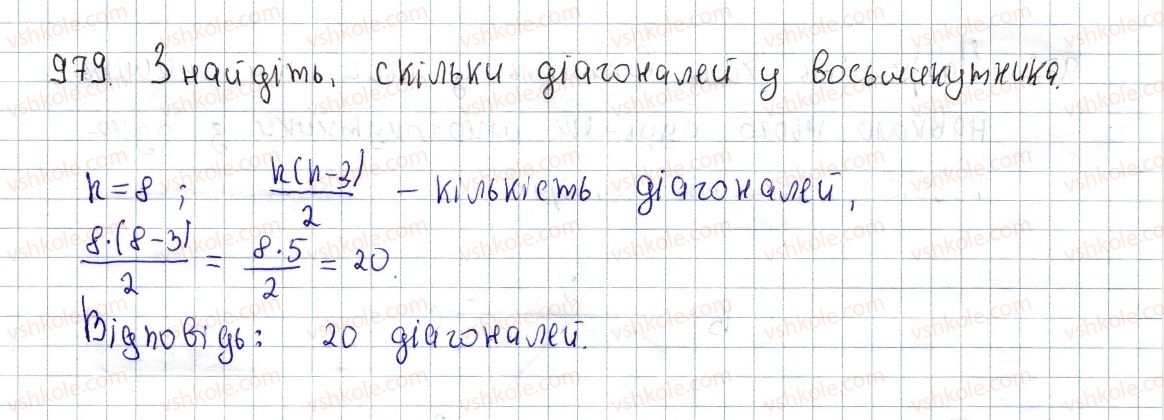 979. Знайдіть, скільки діагоналей у восьмикутника.
n = 8; n(n-3)/2 – кількість діагоналей,
8·(8-3)/2 = 8·5/2 = 20.
Відповідь: 20 діагоналей.